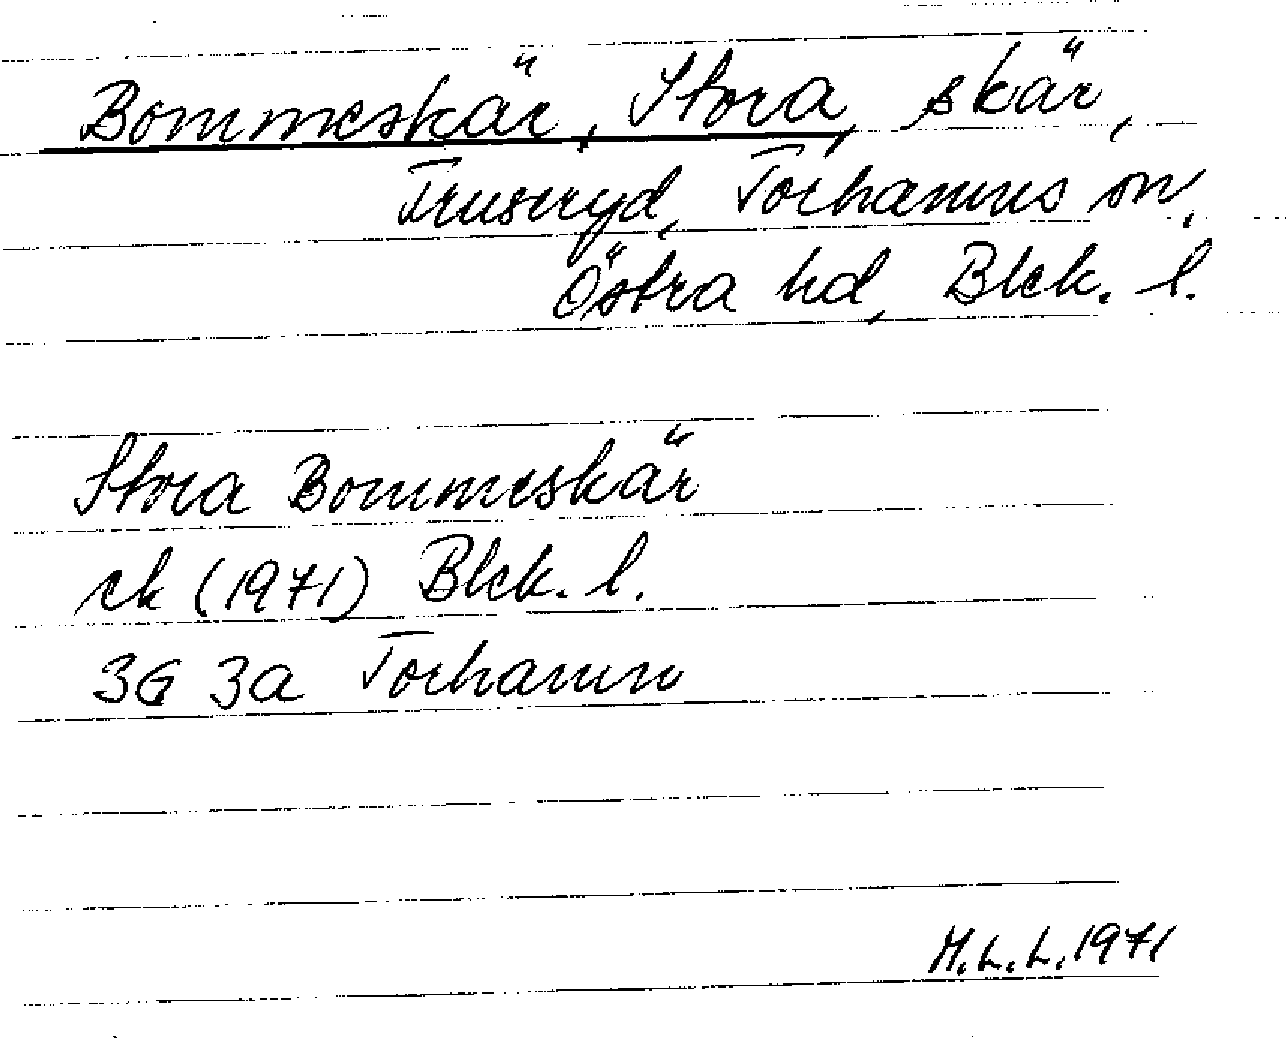 Bommeskär, Stora, skär,
Truseryd, Torhamns sn,
Östra hd, Blek. l.
Stora Bommeskär
ek (1971) Blek. l.
3G 3a Torhamn
M.L.L. 1971